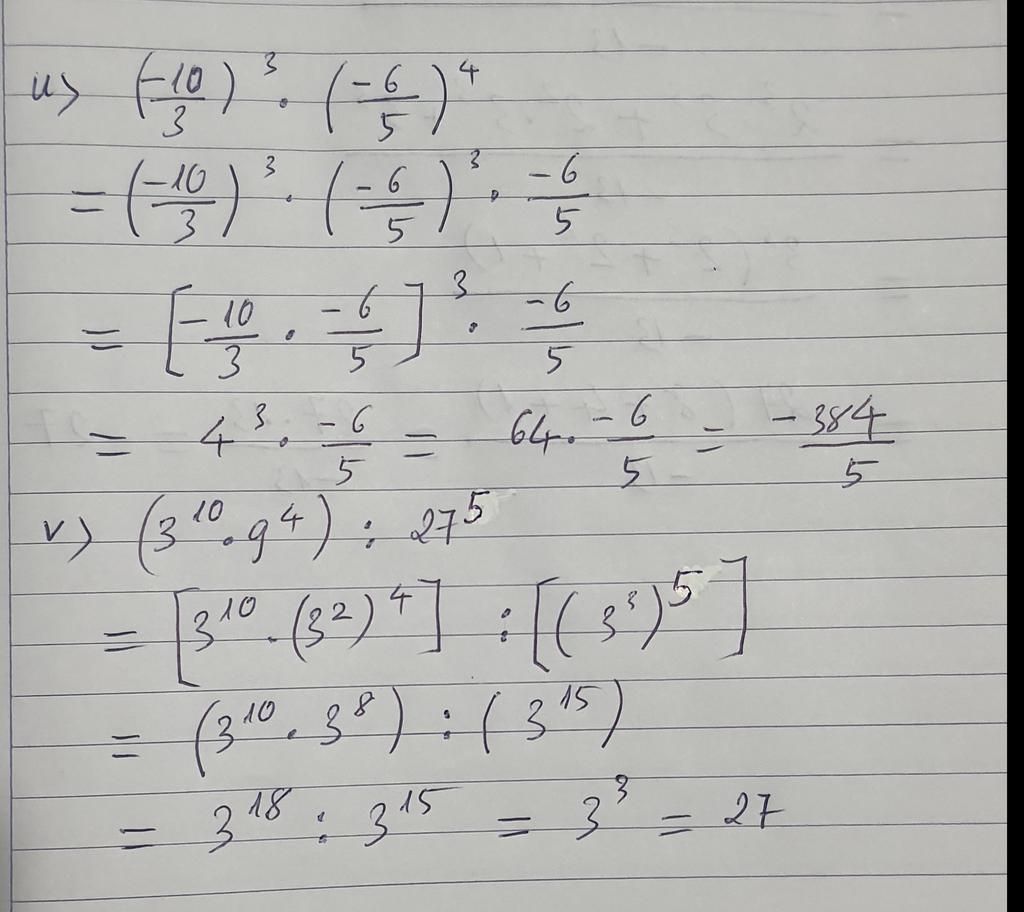 u) (-10/3)^3 . (-6/5)^4
= (-10/3)^3 . (-6/5)^3 . -6/5
= [-10/3 . -6/5]^3 . -6/5
= 4^3 . -6/5 = 64 . -6/5 = -384/5
v) (3^10 . 9^4) : 27^5
= [3^10 . (3^2)^4] : [(3^3)^5]
= (3^10 . 3^8) : (3^15)
= 3^18 : 3^15 = 3^3 = 27